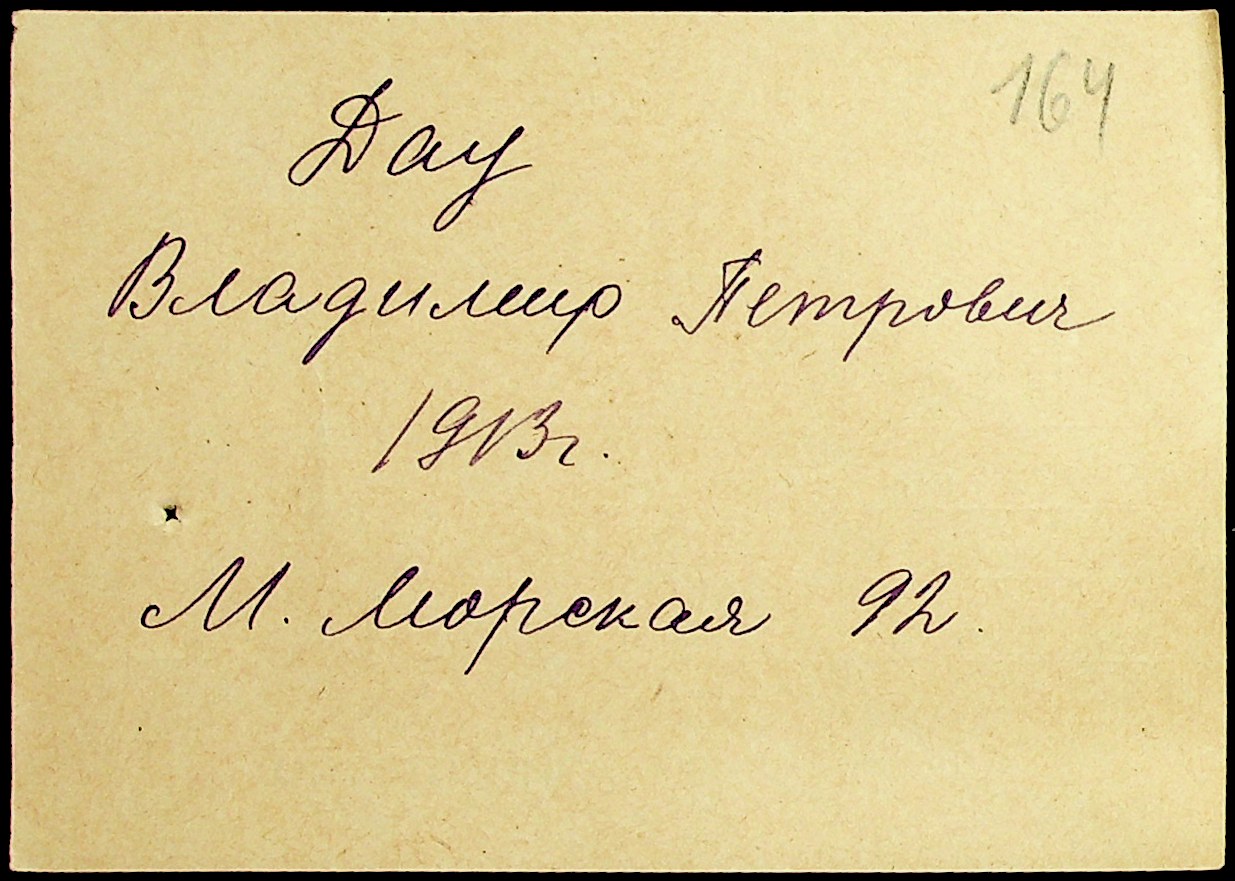 164
Дау
Владимир Петрович
1913г.
М. Морская 92.